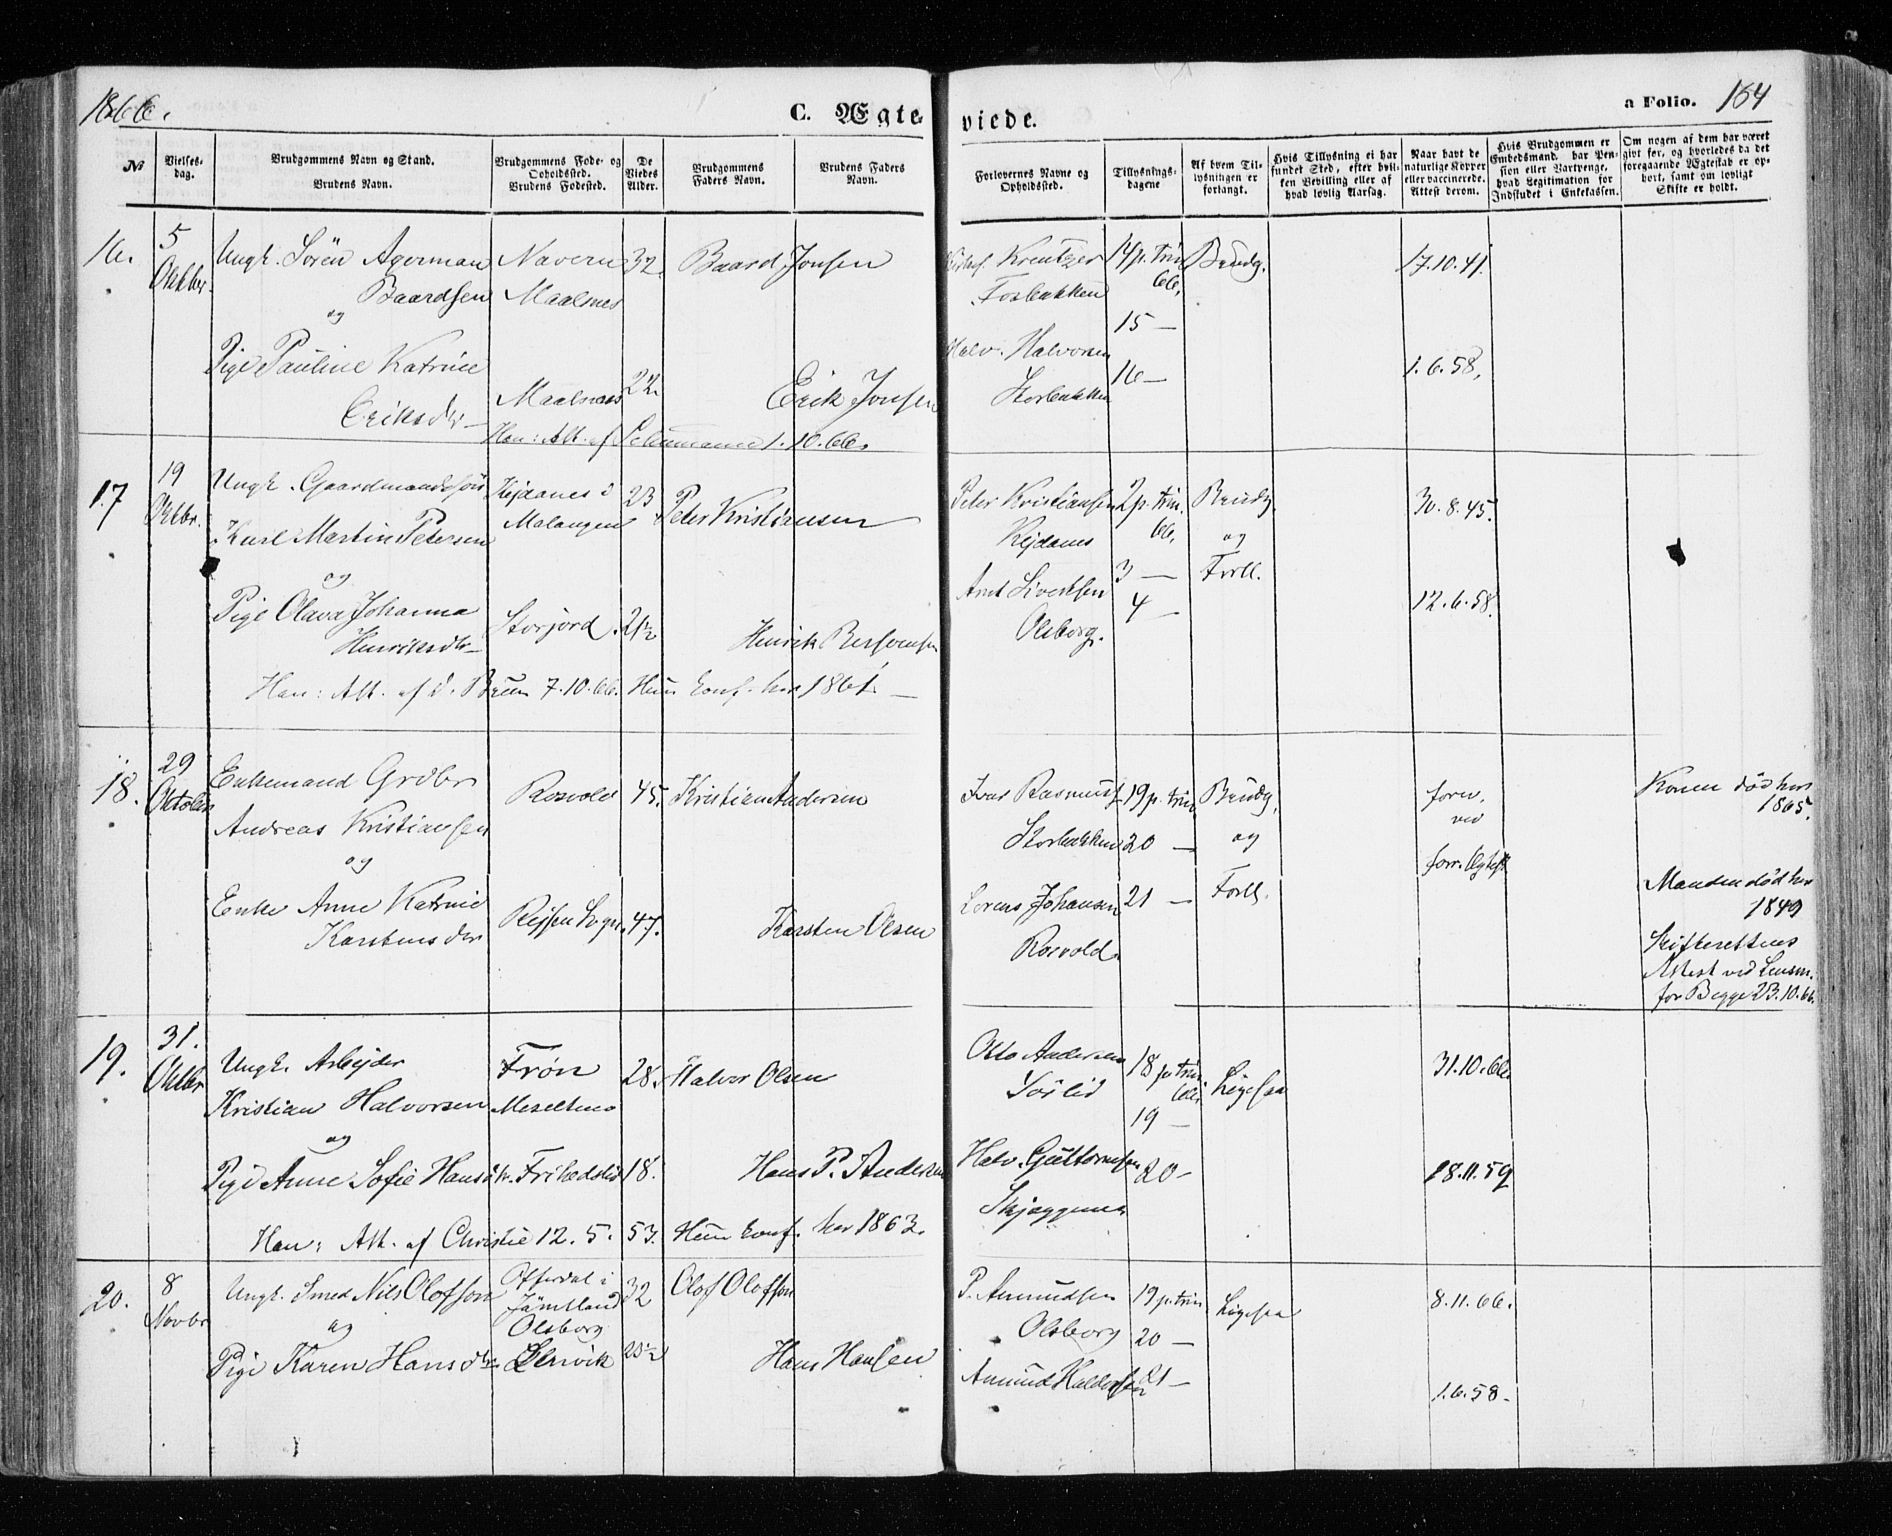 1866.
C. Ægteviede.
a Folio. 164
No
Vielses-dag.
Brudgommens Navn og Stand.
Brudens Navn.
Brudgommens Føde- og Opholdssted.
Brudens Fødested.
De Viedes Alder.
Brudgommens Faders Navn.
Brudens Faders Navn.
Forlovernes Navne og Opholdssted.
Tillysnings-dagene
Af hvem Tillysningen er forlangt.
Hvis Tillysning ei har fundet Sted, efter hvilken Bevilling eller af hvad lovlig Aarsag.
Naar havt de naturlige Kopper eller vaccinerede. Attest derom.
Hvis Brudgommen er Embedsmand, har Pension eller Vartpenge, hvad Legitimation for Indskudet i Enkekassen.
Om nogen af dem har været givt før, og hvorledes da det foregaaende Ægteskab er ophørt, samt om lovligt Skifte er holdt.
16. 5 Oktbr. Ungk. Sören Agerman Baardsen Navern Maalsnes 32 Baard Jonsen Kreutzer Forbakken 14 p. trin 66, Brudg. 17.10.41.
og
15 —
Pige Pauline Katrine Eriksdtr Maalsnes 22. Erik Jonsen Halv. Halvorsen Storbakken 16 — 1.6.58,
Han: Att. af Schumann 1.10.66.
17. 19 Oktbr. Ungk. Gaardmandssön Karl Martin Petersen Kejdanes i Malangen 23 Peter Kristiansen Peter Kristiansen Kejdanes 2 p. trin. 66, Brudg. og Forll. 30.8.45.
og
3 —
Pige Olava Johanna Henriksdtr Storjord. 21½ Henrik Bersvensen Arnt Sivertsen Olsborg. 4 — 12.6.58.
Han: Att. af d. Bruun 7.10.66. Hun konf. her 1861. —
18. 29 Oktober Enkemand Grdbr Andreas Kristiansen Rosvold 45. Kristian Andersen Ivar Rasmuss. Storbakken 19 p. trin Brudg. og Forll. forev. ved forr. Ægtesk. Konen död her 1865.
og
20 —
Enke Anne Katrine Karstensdtr Rejsen Sogn. 47. Karsten Olsen Lorens Johansen Rosvold. 21 — Manden död her 1849
Skifterettens Attest ved Lensm. for Begge 23.10.66.
19. 31. Oktbr Ungk. Arbejder Kristian Halvorsen Frön Meseltmo 28. Halvor Olsen Otto Andersen Sörlid 18 p. trin 66, Ligesaa 31.10.66
og
19 —
Pige Anne Sofie Hansdtr. Frihedslid 18. Hans P. Andersen Halv. Guttormsen Skjæggenes 20 — 18.11.59
Han: Att. af Christie 12.5.53. Hun konf. her 1863.
20. 8 Novbr Ungk. Smed Nils Olofsson Offerdal i Jämtland Olsborg 32 Olof Olofsson P. Amundsen Olsborg 19 p. trin Ligesaa 8.11.66.
og
20 —
Pige Karen Hansdtr Lenvik 20½ Hans Hansen Amund Haldorsen 21 — 1.6.58 —